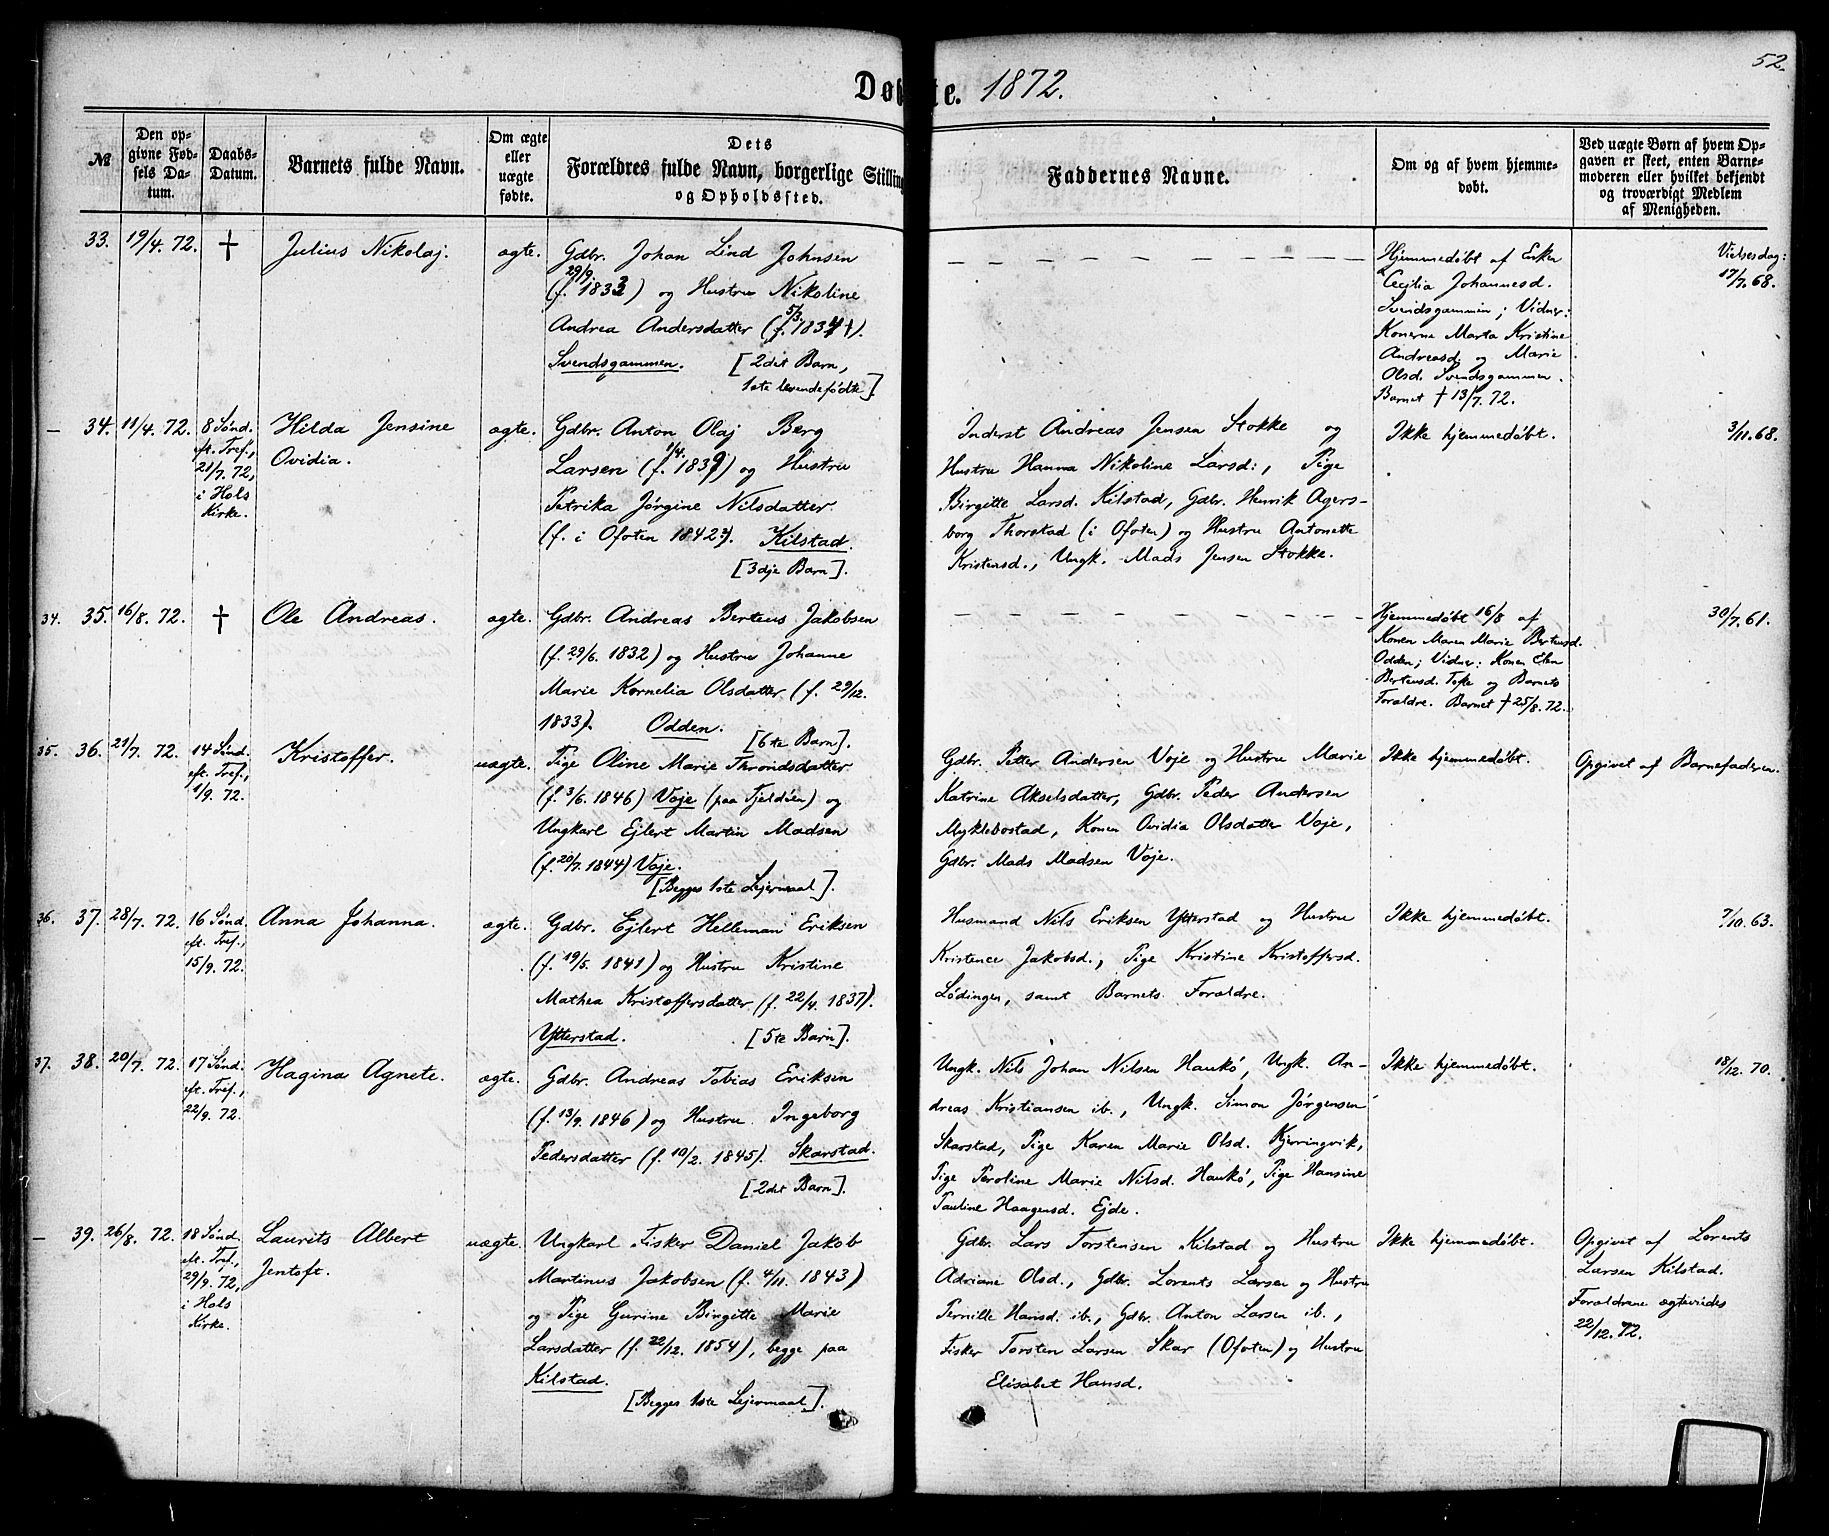 52.
Døbte. 1872.
№
Den opgivne Fødsels Datum.
Daabs-Datum.
Barnets fulde Navn.
Om ægte eller uægte fødte.
Dets Forældres fulde Navn, borgerlige Stilling og Opholdssted.
Faddernes Navne.
Om og af hvem hjemmedøbt.
Ved uægte Børn af hvem Opgaven er skeet, enten Barnemoderen eller hvilket bekjendt og troværdigt Medlem af Menigheden.
33. 19/4. 72. † Julius Nikolaj. ægte.
Gdbr. Johan Lind Johnsen
(f. 29/9 1833) og Hustru Nikoline
Andrea Andersdatter (f. 5/3. 1834).
Svendsgammen. [2det Barn,
1ste levendefødte].
Hjemmedøbt af Enken
Cecilia Johannesd.
Svendsgammen; Vidner:
Konerne Marta Kristine
Andreasd. og Marie
Olsd. Svendsgammen.
Barnet † 13/7. 72.
Vielsesdag:
17/7. 68.
— 34. 11/4. 72.
8 Sønd.
eft. Tref.,
21/7. 72,
i Hols
Kirke.
Hilda Jensine
Ovidia.
ægte.
Gdbr. Anton Olaj Berg
Larsen (f. 1/4. 1839) og Hustru
Petrika Jørgine Nilsdatter
(f. i Ofoten 1842?). Kilstad.
[3dje Barn].
Inderst Andreas Jensen Stokke og
Hustru Hanna Nikoline Larsd:, Pige
Birgitte Larsd. Kilstad, Gdbr. Henrik Agers-
borg Thorstad (i Ofoten) og Hustru Antonette
Kristensd., Ungk. Mads Jensen Stokke.
Ikke hjemmedøbt.
3/11. 68.
34. 35. 16/8. 72. † Ole Andreas. ægte.
Gdbr. Andreas Berteus Jakobsen
(f. 29/6. 1832) og Hustru Johanne
Marie Kornelia Olsdatter (f. 29/12.
1833). Odden. [6te Barn].
Hjemmedøbt 16/8 af
Konen Maren Marie Berteusd.
Odden; Vidner: Konen Elen
Berteusd. Tofte og Barnets
Forældre. Barnet † 25/8. 72.
30/7. 61.
35. 36. 21/7. 72.
14 Sønd.
eft. Tref.,
1/9. 72.
Kristoffer. uægte.
Pige Oline Marie Throndsdatter
(f. 3/6. 1846) Voje (paa Tjeldøen) og
Ungkarl Ejlert Martin Madsen
(f. 20/7. 1844) Voje.
[Begges 1ste Lejermaal].
Gdbr. Petter Andersen Voje og Hustru Marie
Katrine Akselsdatter, Gdbr. Peder Andersen
Myklebostad, Konen Ovidia Olsdatter Voje,
Gdbr. Mads Madsen Voje.
Ikke hjemmedøbt.
Opgivet af Barnefaderen.
36. 37. 28/7. 72.
16 Sønd.
eft. Tref.,
15/9. 72.
Anna Johanna. ægte.
Gdbr. Ejlert Helleman Eriksen
(f. 19/5. 1841) og Hustru Kristine
Mathea Kristoffersdatter (f. 22/4. 1837).
Ytterstad. [5te Barn].
Husmand Nils Eriksen Ytterstad og Hustru
Kristence Jakobsd., Pige Kristine Kristoffersd.
Lødingen, samt Barnets Forældre.
Ikke hjemmedøbt.
7/10. 63.
37. 38. 20/7. 72.
17 Sønd.
eft. Tref.,
22/9. 72.
Hagina Agnete. ægte.
Gdbr. Andreas Tobias Eriksen
(f. 13/9. 1846) og Hustru Ingeborg
Pedersdatter (f. 10/2. 1845). Skarstad.
[2det Barn].
Ungk. Nils Johan Nilsen Haukø, Ungk. An-
dreas Kristiansen ib., Ungk. Simon Jørgensen
Skarstad, Pige Karen Marie Olsd. Kjerringvik,
Pige Peroline Marie Nilsd. Haukø, Pige Hansine
Pauline Haagensd. Ejde.
Ikke hjemmedøbt.
18/12. 70.
— 39. 26/8. 72.
18 Sønd.
eft. Tref.,
29/9. 72,
i Hols
Kirke.
Laurits Albert
Jentoft.
uægte.
Ungkarl Fisker Daniel Jakob
Martinus Jakobsen (f. 4/11. 1843)
og Pige Gurine Birgitte Marie
Larsdatter (f. 22/12. 1854), begge paa
Kilstad.
[Begges 1ste Lejermaal].
Gdbr. Lars Torstensen Kilstad og Hustru
Adriane Olsd., Gdbr. Lorents Larsen og Hustru
Pernille Hansd. ib., Gdbr. Anton Larsen ib.,
Fisker Torsten Larsen Skar (Ofoten) og Hustru
Elisabet Hansd.
Ikke hjemmedøbt.
Opgivet af Lorents
Larsen Kilstad.
Forældrene ægteviedes
22/12. 72.